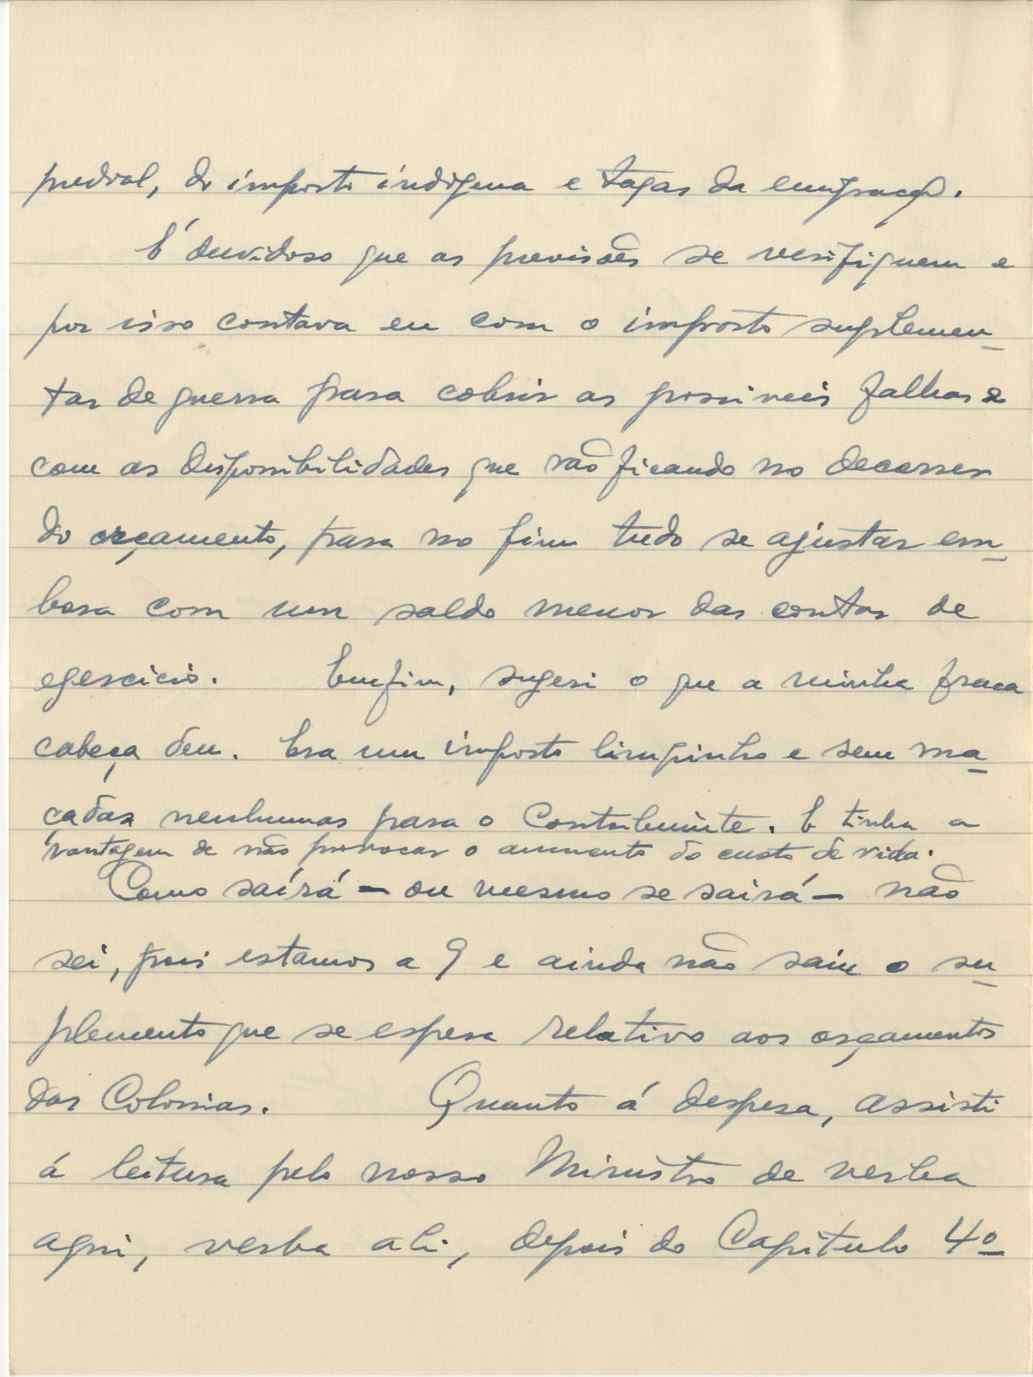 predial, do imposto indígena e taxas da emigração.
É duvidoso que as previsões se verifiquem e
por isso contava eu com o imposto suplemen-
tar de guerra para cobrir as possiveis falhas e
com as disponibilidades que vão ficando no decorrer
do orçamento, para no fim tudo se ajustar em-
bora com um saldo menor das contas de
exercicio. Emfim, sugeri o que a minha fraca
cabeça deu. Era um imposto limpinho e sem ma-
çadas nenhumas para o Contribuinte. E tinha a
vantagem de não provocar o aumento do custo de vida.
Como saírá — ou mesmo se sairá — não
sei, pois estamos a 9 e ainda não saiu o su-
plemento que se espera relativo aos orçamentos
das Colonias. Quanto á despesa, assisti
á leitura pelo nosso Ministro de verba
aqui, verba ali, depois do Capítulo 4º